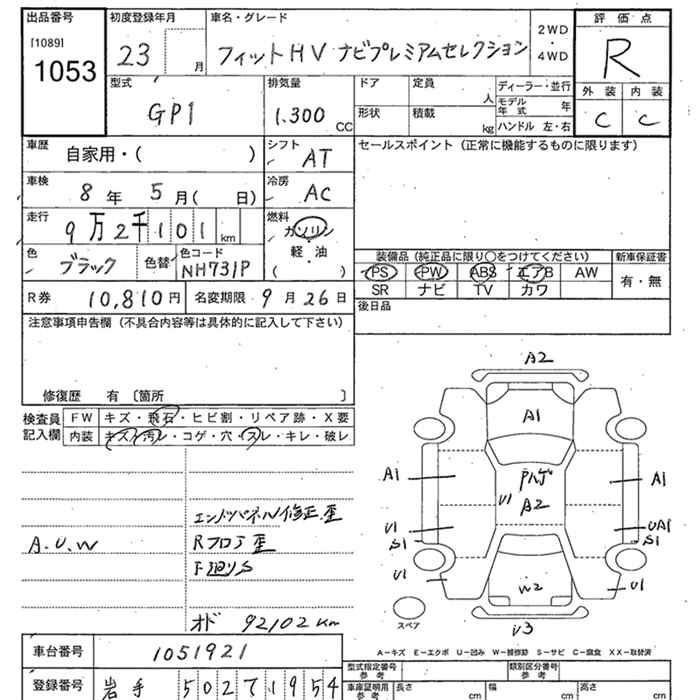 出品番号
[1089]
1053
初度登録年月
23 月
車名・グレード
フィットHV ナビプレミアムセレクション
2WD
・
4WD
評価点
R
外装 内装
C C
型式
GP1
排気量
1.300 CC
ドア
定員
人
形状
積載
kg
ディーラー・並行
モデル年式 年
ハンドル 左・右
車歴
自家用・( )
シフト
AT
セールスポイント (正常に機能するものに限ります)
車検
8年 5月( 日)
冷房
AC
走行
9万2千101 km
燃料
ガソリン
軽油
( )
色
ブラック
色替
色コード
NH731P
装備品 (純正品に限り○をつけてください)
PS PW ABS エアB AW
SR ナビ TV カワ
新車保証書
有・無
R券 10,810円
名変期限 9月26日
後日品
注意事項申告欄 (不具合内容等は具体的に記入して下さい)
修復歴 有 〔箇所 〕
検査員記入欄
FW キズ・飛石・ヒビ割・リペア跡・X要
内装 キズ・汚レ・コゲ・穴・スレ・キレ・破レ
エンドパネル修正歪
A.U.W
Rフロア歪
オド 92102km
A2
A1
A1
A1
U1
A2
U1
S1
UA1
S1
U1
U1
W2
スペア
A−キズ E−エクボ U−凹み W−補修跡 S−サビ C−腐食 XX−取替済
車台番号 1051921
登録番号 岩手 502 1954
型式指定番号
参考
類別区分番号
参考
車庫証明用
参考
長さ cm
幅 cm
高さ cm